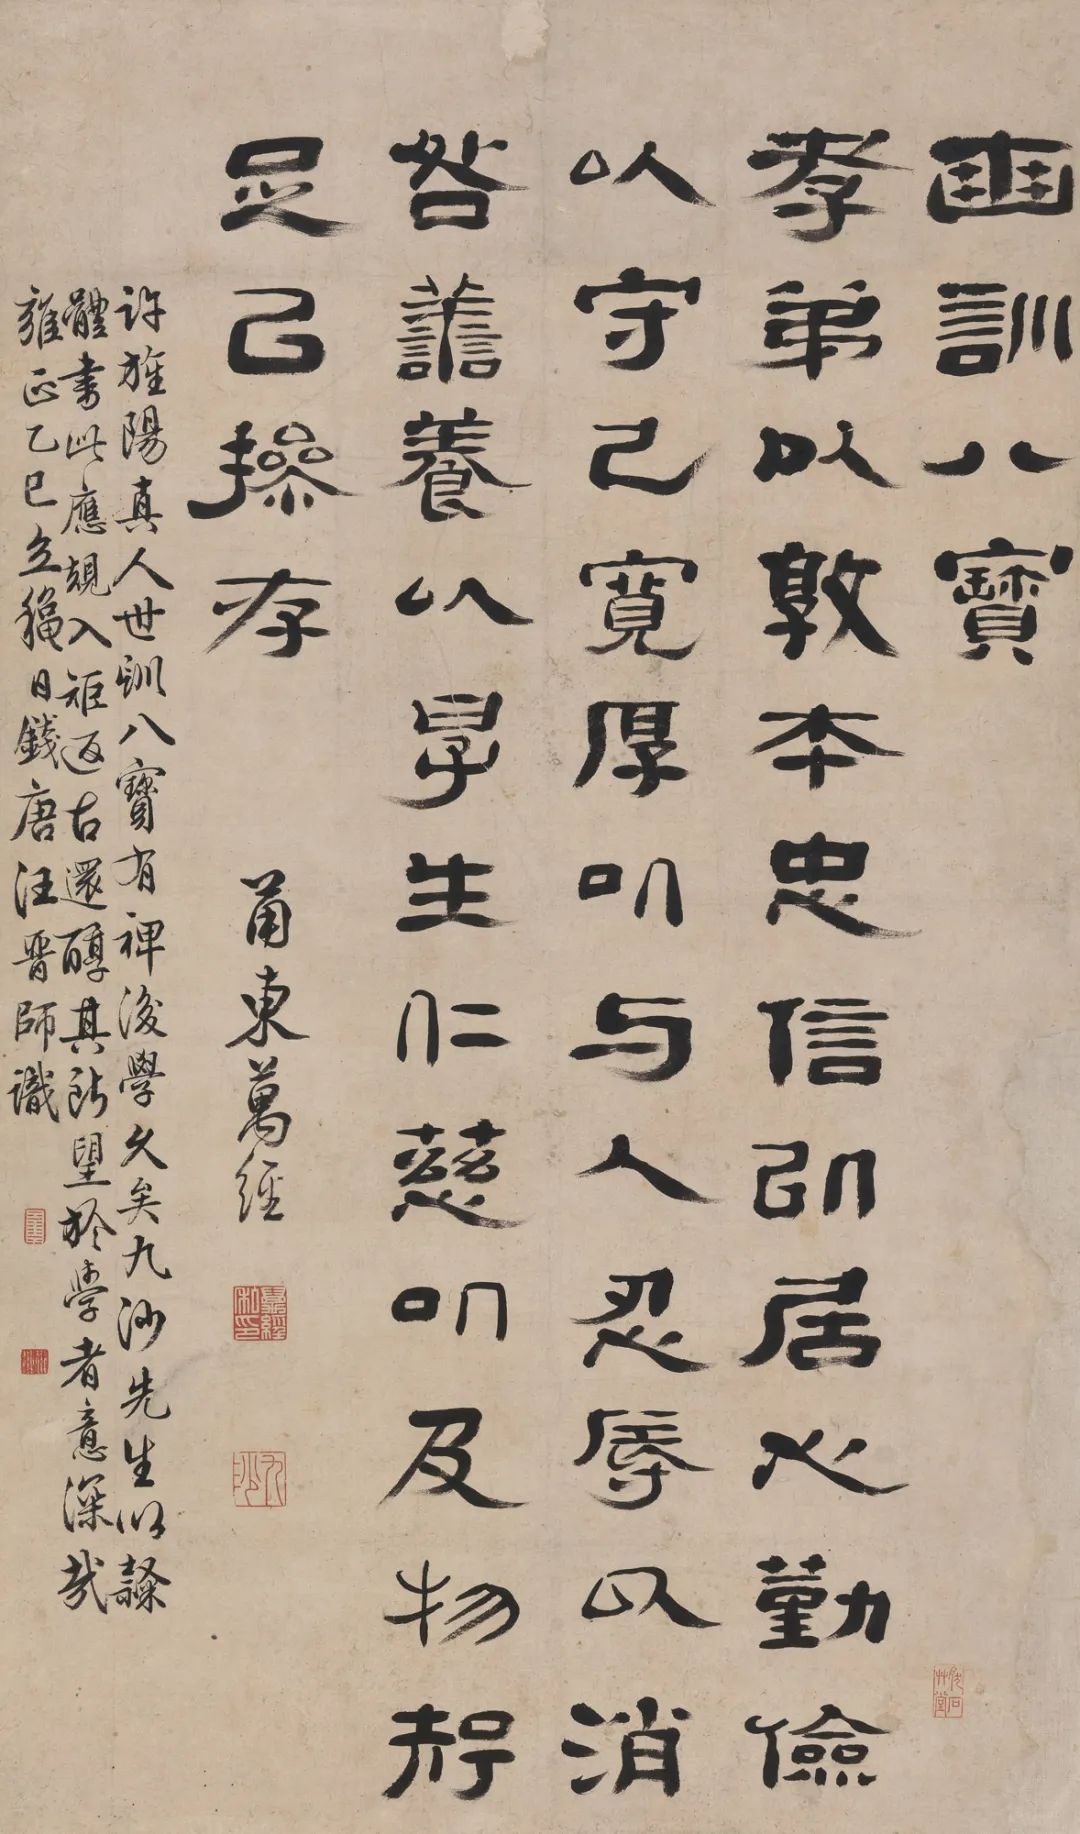 世訓八寶
孝弟以敦本忠信以居心勤儉
以守己寬厚以与人忍辱以消
咎譱養以㫗生仁慈以及物知
足以操存
甬東萬經
萬經私印
九沙
許旌陽真人世訓八寶有裨後學久矣九沙先生以隸
體書此應規入矩返古還醇其所望於學者意深哉
雍正乙巳立穐日錢唐汪晉師識